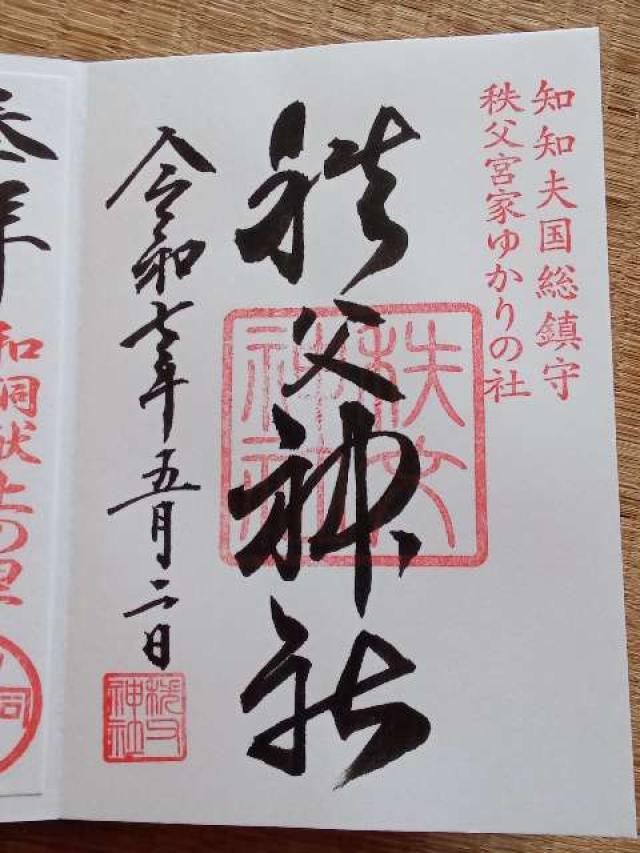 知知夫国総鎮守
秩父宮家ゆかりの社
秩父神社
秩父神社
令和七年五月二日
秩父神社
和銅献上の里